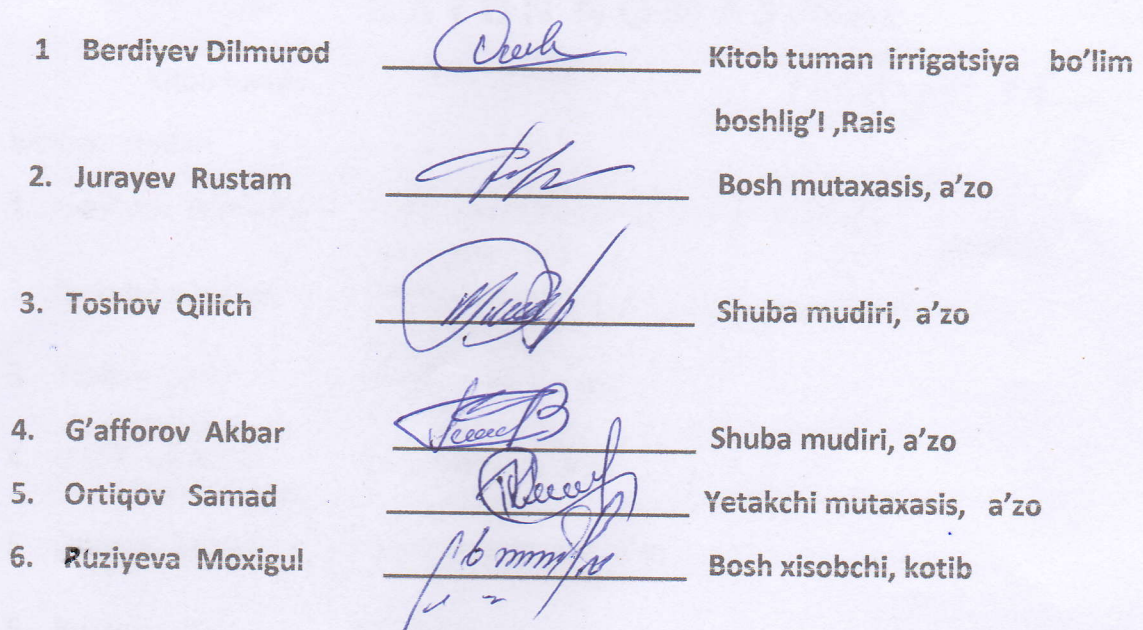 1 Berdiyev Dilmurod Kitob tuman irrigatsiya bo'lim
boshlig'! ,Rais
2. Jurayev Rustam Bosh mutaxasis, a'zo
3. Toshov Qilich Shuba mudiri, a'zo
4. G'afforov Akbar Shuba mudiri, a'zo
5. Ortiqov Samad Yetakchi mutaxasis, a'zo
6. Ruziyeva Moxigul Bosh xisobchi, kotib